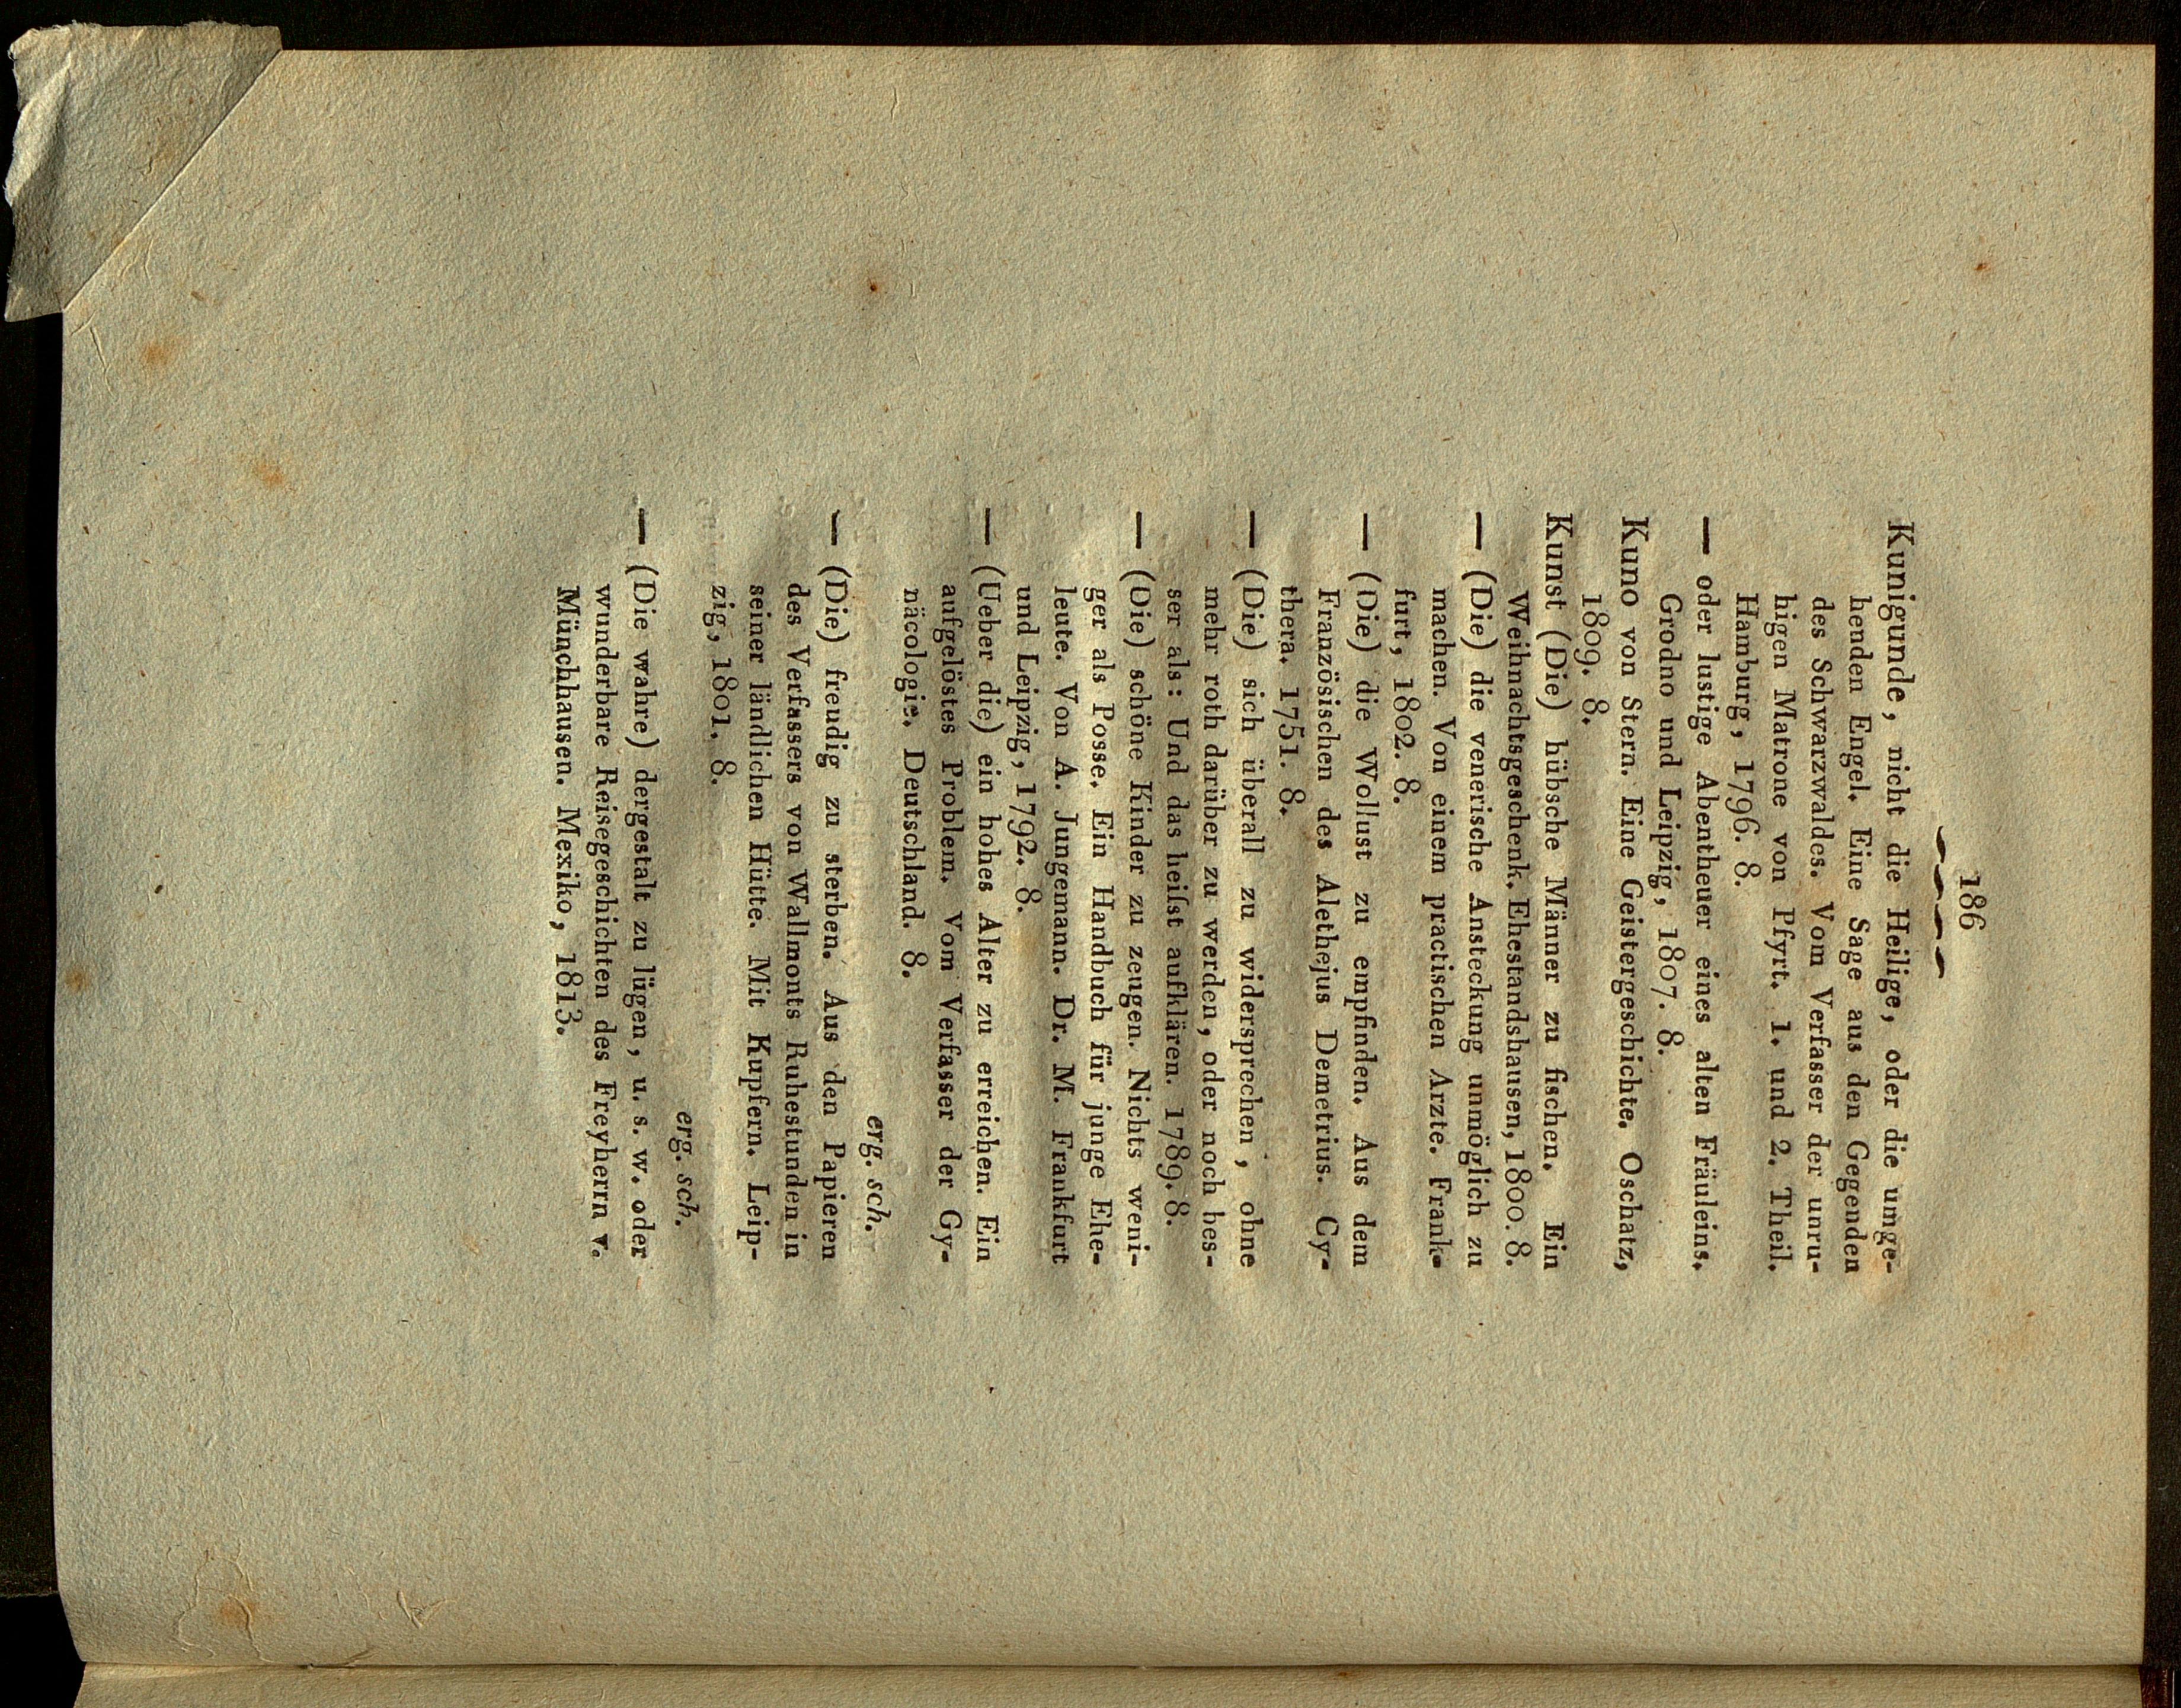 186
Kunigunde, nicht die Heilige, oder die umge-
henden Engel. Eine Sage aus den Gegenden
des Schwarzwaldes. Vom Verfasser der unru-
higen Matrone von Pfyrt. 1. und 2. Theil.
Hamburg, 1796. 8.
— oder lustige Abentheuer eines alten Fräuleins.
Grodno und Leipzig, 1807. 8.
Kuno von Stern. Eine Geistergeschichte. Oschatz,
1809. 8.
Kunst (Die) hübsche Männer zu fischen. Ein
Weihnachtsgeschenk. Ehestandshausen, 1800. 8.
— (Die) die venerische Ansteckung unmöglich zu
machen. Von einem practischen Arzte. Frank-
furt, 1802. 8.
— (Die) die Wollust zu empfinden. Aus dem
Französischen des Alethejus Demetrius. Cy-
thera. 1751. 8.
— (Die) sich überall zu widersprechen, ohne
mehr roth darüber zu werden, oder noch bes-
ser als: Und das heiſst aufklären. 1789. 8.
— (Die) schöne Kinder zu zeugen. Nichts weni-
ger als Posse. Ein Handbuch für junge Ehe-
leute. Von A. Jungemann. Dr. M. Frankfurt
und Leipzig, 1792. 8.
— (Ueber die) ein hohes Alter zu erreichen. Ein
aufgelöstes Problem. Vom Verfasser der Gy-
näcologie. Deutschland. 8.
erg. sch.
— (Die) freudig zu sterben. Aus den Papieren
des Verfassers von Wallmonts Ruhestunden in
seiner ländlichen Hütte. Mit Kupfern. Leip-
zig, 1801. 8.
erg. sch.
— (Die wahre) dergestalt zu lügen, u. s. w. oder
wunderbare Reisegeschichten des Freyherrn v.
Münchhausen. Mexiko, 1813.